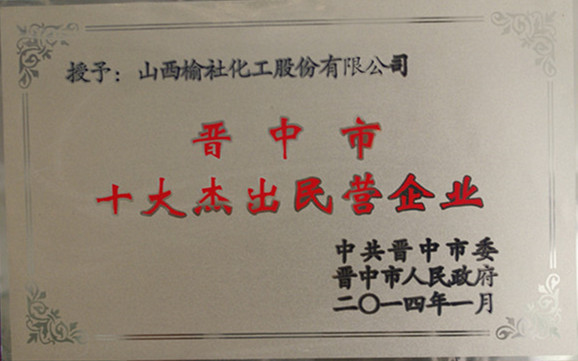 授予：山西榆社化工股份有限公司
晋中市
十大杰出民营企业
中共晋中市委
晋中市人民政府
二〇一四年一月